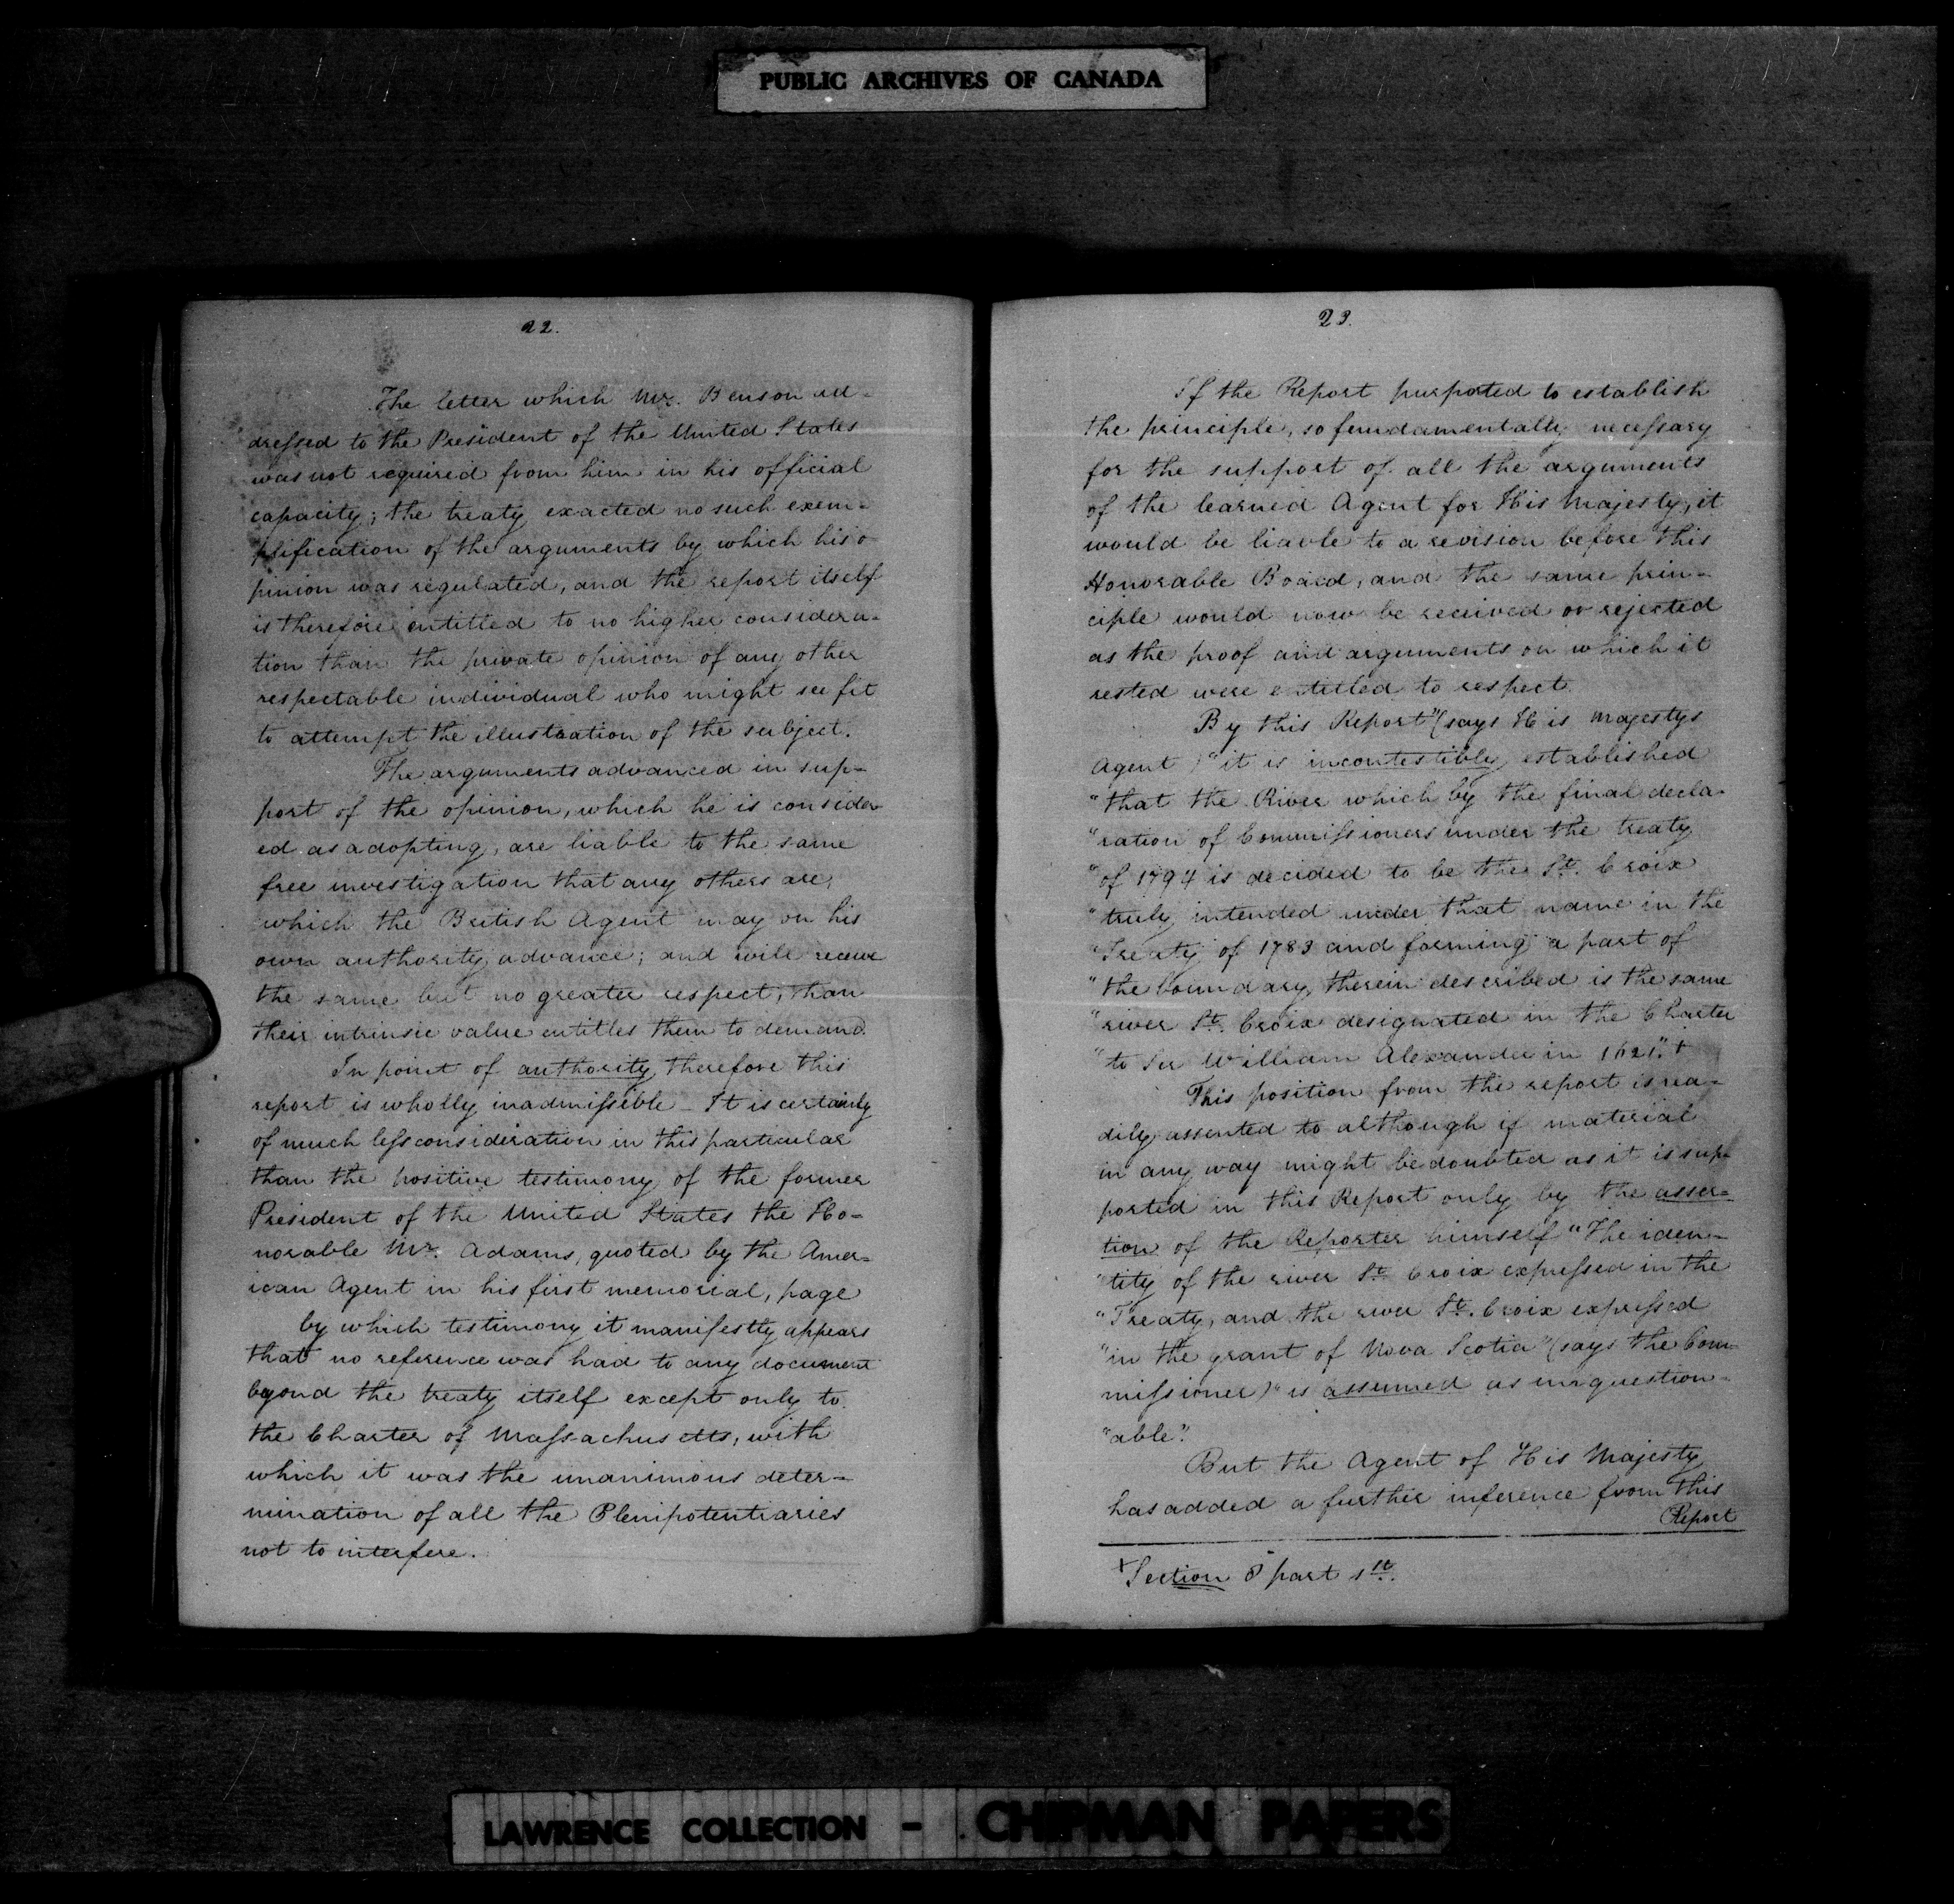 PUBLIC ARCHIVES OF CANADA
22.
The letter which Mr. Benson ad-
dressed to the President of the United States
was not required from him in his official
capacity; the treaty exacted no such exem-
plification of the arguments by which his o
pinion was regulated, and the report itself
is therefore entitled to no higher considera-
tion than the private opinion of any other
respectable individual who might see fit
to attempt the illustration of the subject.
The arguments advanced in sup-
port of the opinion, which he is consider
ed as adopting, are liable to the same
free investigation that any others are,
which the British Agent may on his
own authority advance; and will receive
the same but no greater respect, than
their intrinsic value entitles them to demand.
In point of authority therefore this
report is wholly inadmissible - It is certainly
of much less consideration in this particular
than the positive testimony of the former
President of the United States the Ho-
norable Mr. Adams, quoted by the Amer-
ican Agent in his first memorial, page
by which testimony it manifestly appears
that no reference was had to any document
beyond the treaty itself except only to
the Charter of Massachusetts, with
which it was the unanimous deter-
mination of all the Plenipotentiaries
not to interfere.
23.
If the Report purported to establish
the principle, so fundamentally necessary
for the support of all the arguments
of the learned Agent for His Majesty, it
would be liable to a revision before this
Honorable Board, and the same prin-
ciple would now be received or rejected
as the proof and arguments on which it
rested were entitled to respect.
By this Report" (says His Majestys
Agent) "it is incontestibly established
"that the River which by the final decla-
"ration of Commissioners under the treaty
"of 1794 is decided to be the St. Croix
"truly intended under that name in the
"Treaty of 1783 and forming a part of
"the boundary therein described is the same
"river St. Croix designated in the Charter
"to Sir William Alexander in 1621".+
This position from the report is rea-
dily assented to although if material
in any way might be doubted as it is sup-
ported in this Report only by the asser-
tion of the Reporter himself "The iden-
"tity of the river St. Croix expressed in the
"Treaty, and the river St. Croix expressed
"in the grant of Nova Scotia" (says the Com-
missioner) "is assumed as unquestion-
"able".
But the Agent of His Majesty
has added a further inference from this
Report
+Section 8 part 1st.
LAWRENCE COLLECTION - CHIPMAN PAPERS